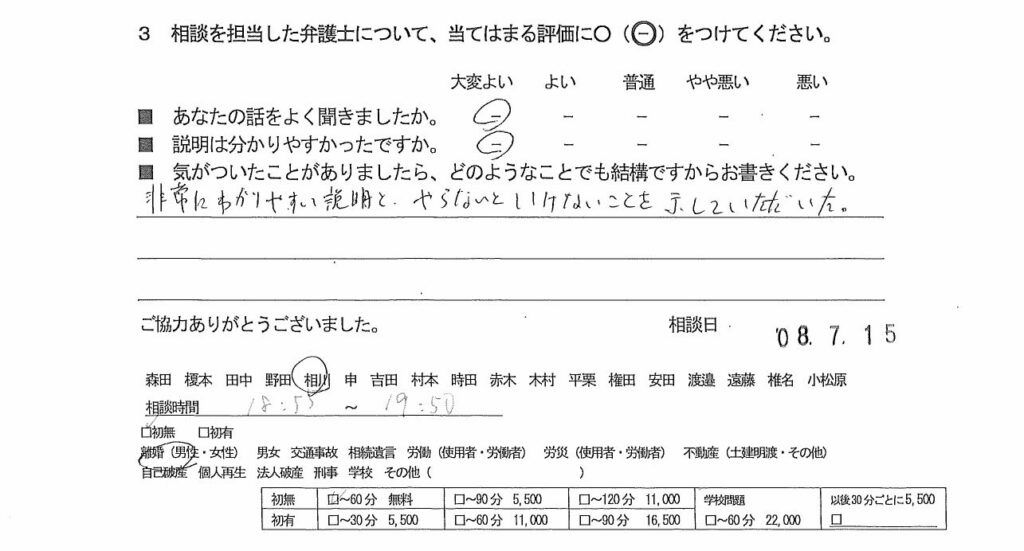 3 相談を担当した弁護士について、当てはまる評価に〇（㊀）をつけてください。
大変よい よい 普通 やや悪い 悪い
■ あなたの話をよく聞きましたか。 − − − − −
■ 説明は分かりやすかったですか。 − − − − −
■ 気がついたことがありましたら、どのようなことでも結構ですからお書きください。
非常にわかりやすい説明と、やらないといけないことを示していただいた。
ご協力ありがとうございました。 相談日 '08.7.15
森田 榎本 田中 野田 相川 申 吉田 村本 時田 赤木 木村 平栗 権田 安田 渡邉 遠藤 椎名 小松原
相談時間 18:55 ～ 19:50
□初無 □初有
離婚（男性・女性） 男女 交通事故 相続遺言 労働（使用者・労働者） 労災（使用者・労働者） 不動産（土建明渡・その他）
自己破産 個人再生 法人破産 刑事 学校 その他（ ）
初無 □～60分 無料 □～90分 5,500 □～120分 11,000 学校問題 以後30分ごとに5,500
初有 □～30分 5,500 □～60分 11,000 □～90分 16,500 □～60分 22,000 □